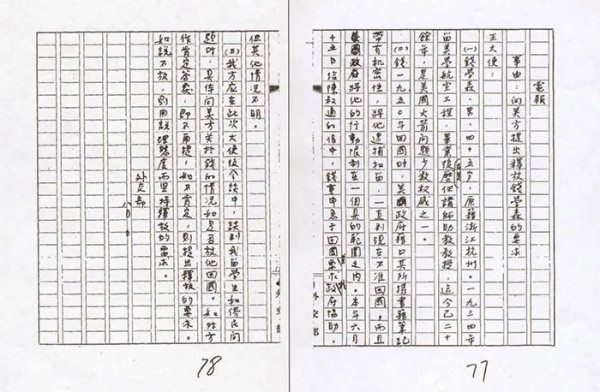 電報
事由:向美方提出釋放錢學森的要求
王大使:
(一)錢學森,男,四十五歲,原籍浙江杭州。一九三四年
留美學航空工程,畢業後歷任講師助教教授,迄今已二十
餘年,是美國火箭問題少數權威之一。
(二)錢一九五〇年回國時,美國政府藉口其所携書籍筆記
帶有机密性,將他逮捕扣留,一直到現在不准回國。而且
美國政府將他的行動限制在一個的範圍之內。本年六月
十五日給陳叔通的信中,錢回國要求政府協助。
77
但其他情況不明。
(三)我方應在此次大使級會談中,談到我留學生和僑民问
題时,具体向美方关於钱的情況和是否放他回國。如对方
作肯定答復,即不再提,如不肯定,則提出釋放的要求。
如說不放,則用說理態度而堅持釋放的要求。
外交部
78